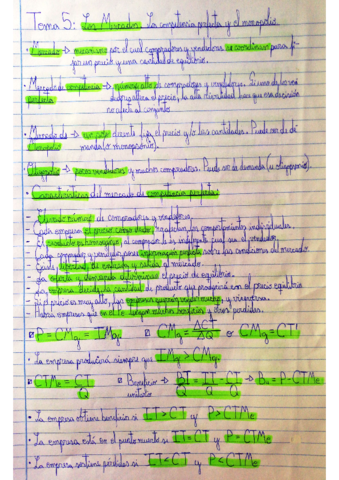 Tema 5: Los Mercados. La competencia perfecta y el monopolio.
· Mercado → mecanismo por el cual compradores y vendedores se coordinan para fi-
jar un precio y una cantidad de equilibrio.
· Mercado de competencia → número alto de compradores y vendedores. Si uno de los ven
perfecta dedores altera el precio, la alta elasticidad hace que esa decisión
no afecte al conjunto.
· Mercado de → un solo oferente fija el precio y/o las cantidades. Puede ser de de
Monopolio manda (o monopsonio).
· Oligopolio → pocos vendedores y muchos compradores. Puede ser de demanda (u oligopsonio).
· Características del mercado de competencia perfecta:
- Elevado número de compradores y vendedores.
- Cada empresa el precio como dado, comportamientos individuales.
- El producto es homogéneo, al comprador le es indiferente cual sea el vendedor.
- Cada comprador y vendedor posee información perfecta sobre las condiciones del mercado.
- Existe libertad de entrada y salida al mercado.
- La oferta y demanda determinan el precio de equilibrio.
- La empresa decide la cantidad de producto que producirá con el precio equilibrio
- Si el precio es muy alto, las empresas querrán vender mucho, y viceversa.
- Habrá empresas que en el c/p tengan muchos beneficios y otras pérdidas.
P = CMg = IMg CMg = ΔCT/ΔQ o CMg = CT'
· La empresa producirá siempre que IMg > CMg.
CTMe = CT/Q Beneficio unitario → BT/Q = IT/Q - CT/Q → Bu = P - CTMe
· La empresa obtiene beneficio si IT > CT y P > CTMe
· La empresa está en el punto muerto si IT = CT y P = CTMe
· La empresa sostiene pérdidas si IT < CT y P < CTMe